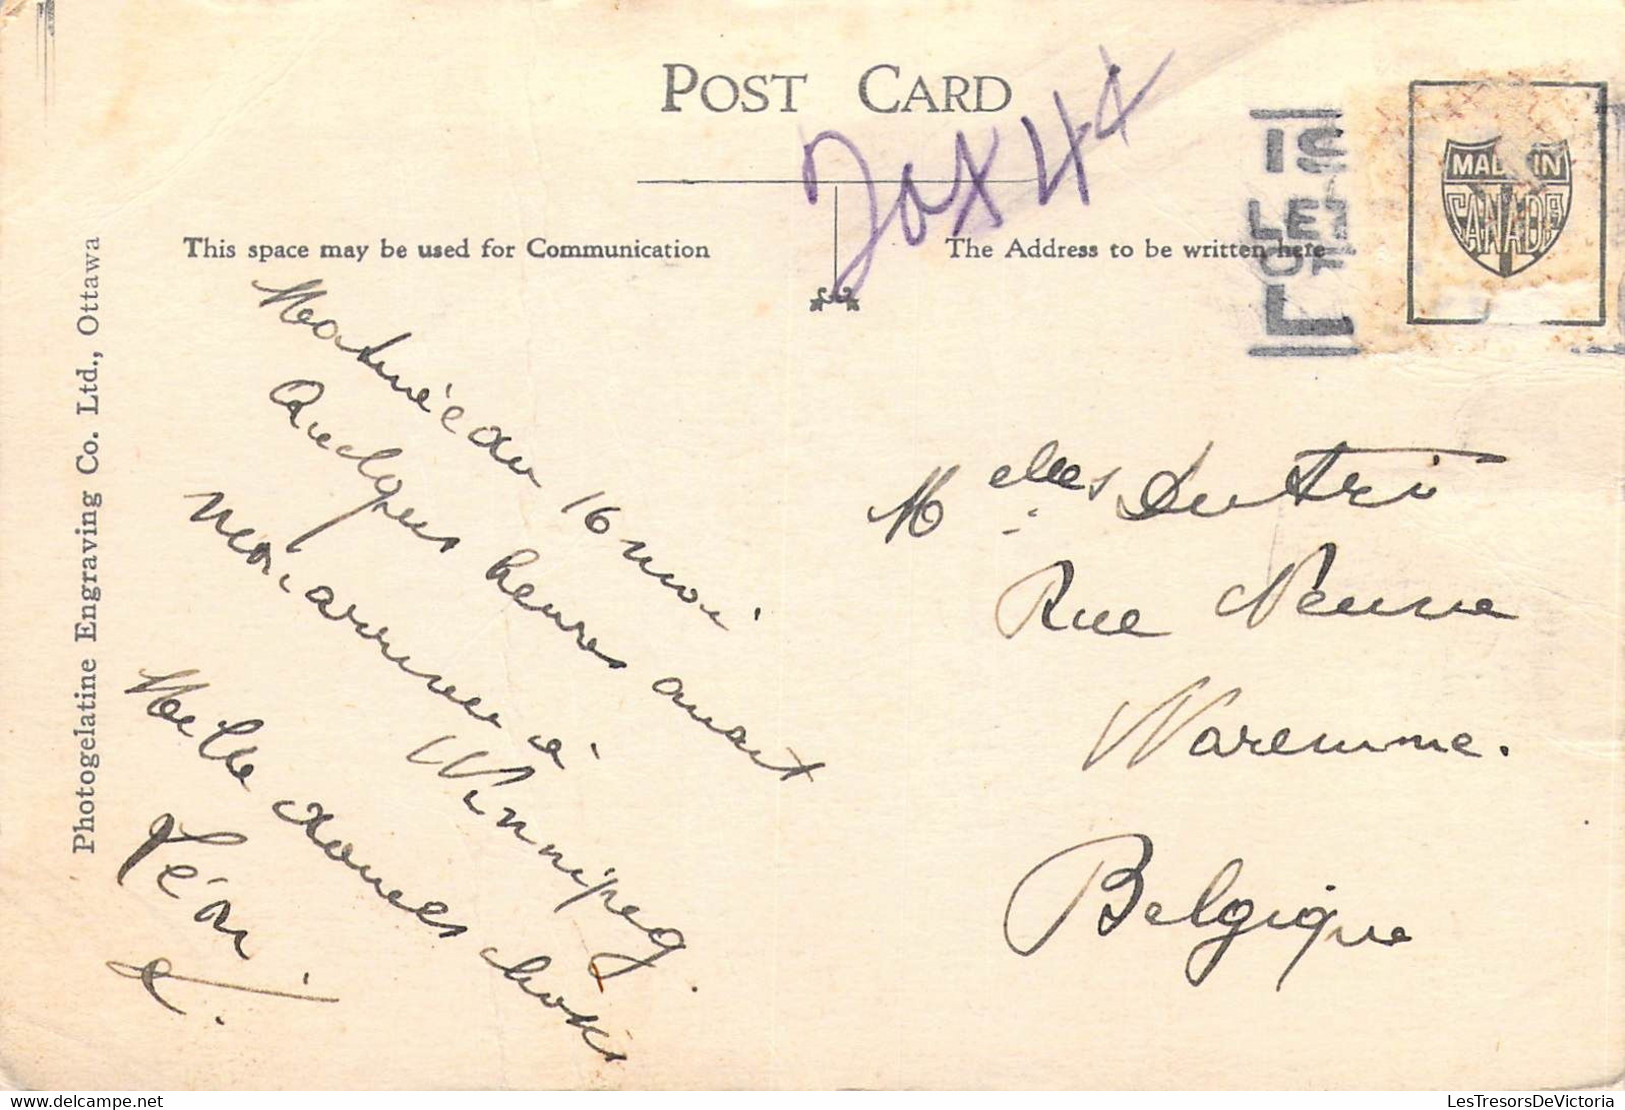 POST CARD
Jax 44
This space may be used for Communication
The Address to be written here
MADE IN
CANADA
IS
LE
L
Photogelatine Engraving Co. Ltd., Ottawa
Matinée du 16 mai
Quelques heures avant
mon arrivée à
Winnipeg.
Mille douces choses
Léon
Melles Dutri
Rue Neuve
Waremme.
Belgique
LesTresorsDeVictoria.delcampe.net
LesTresorsDeVictoria